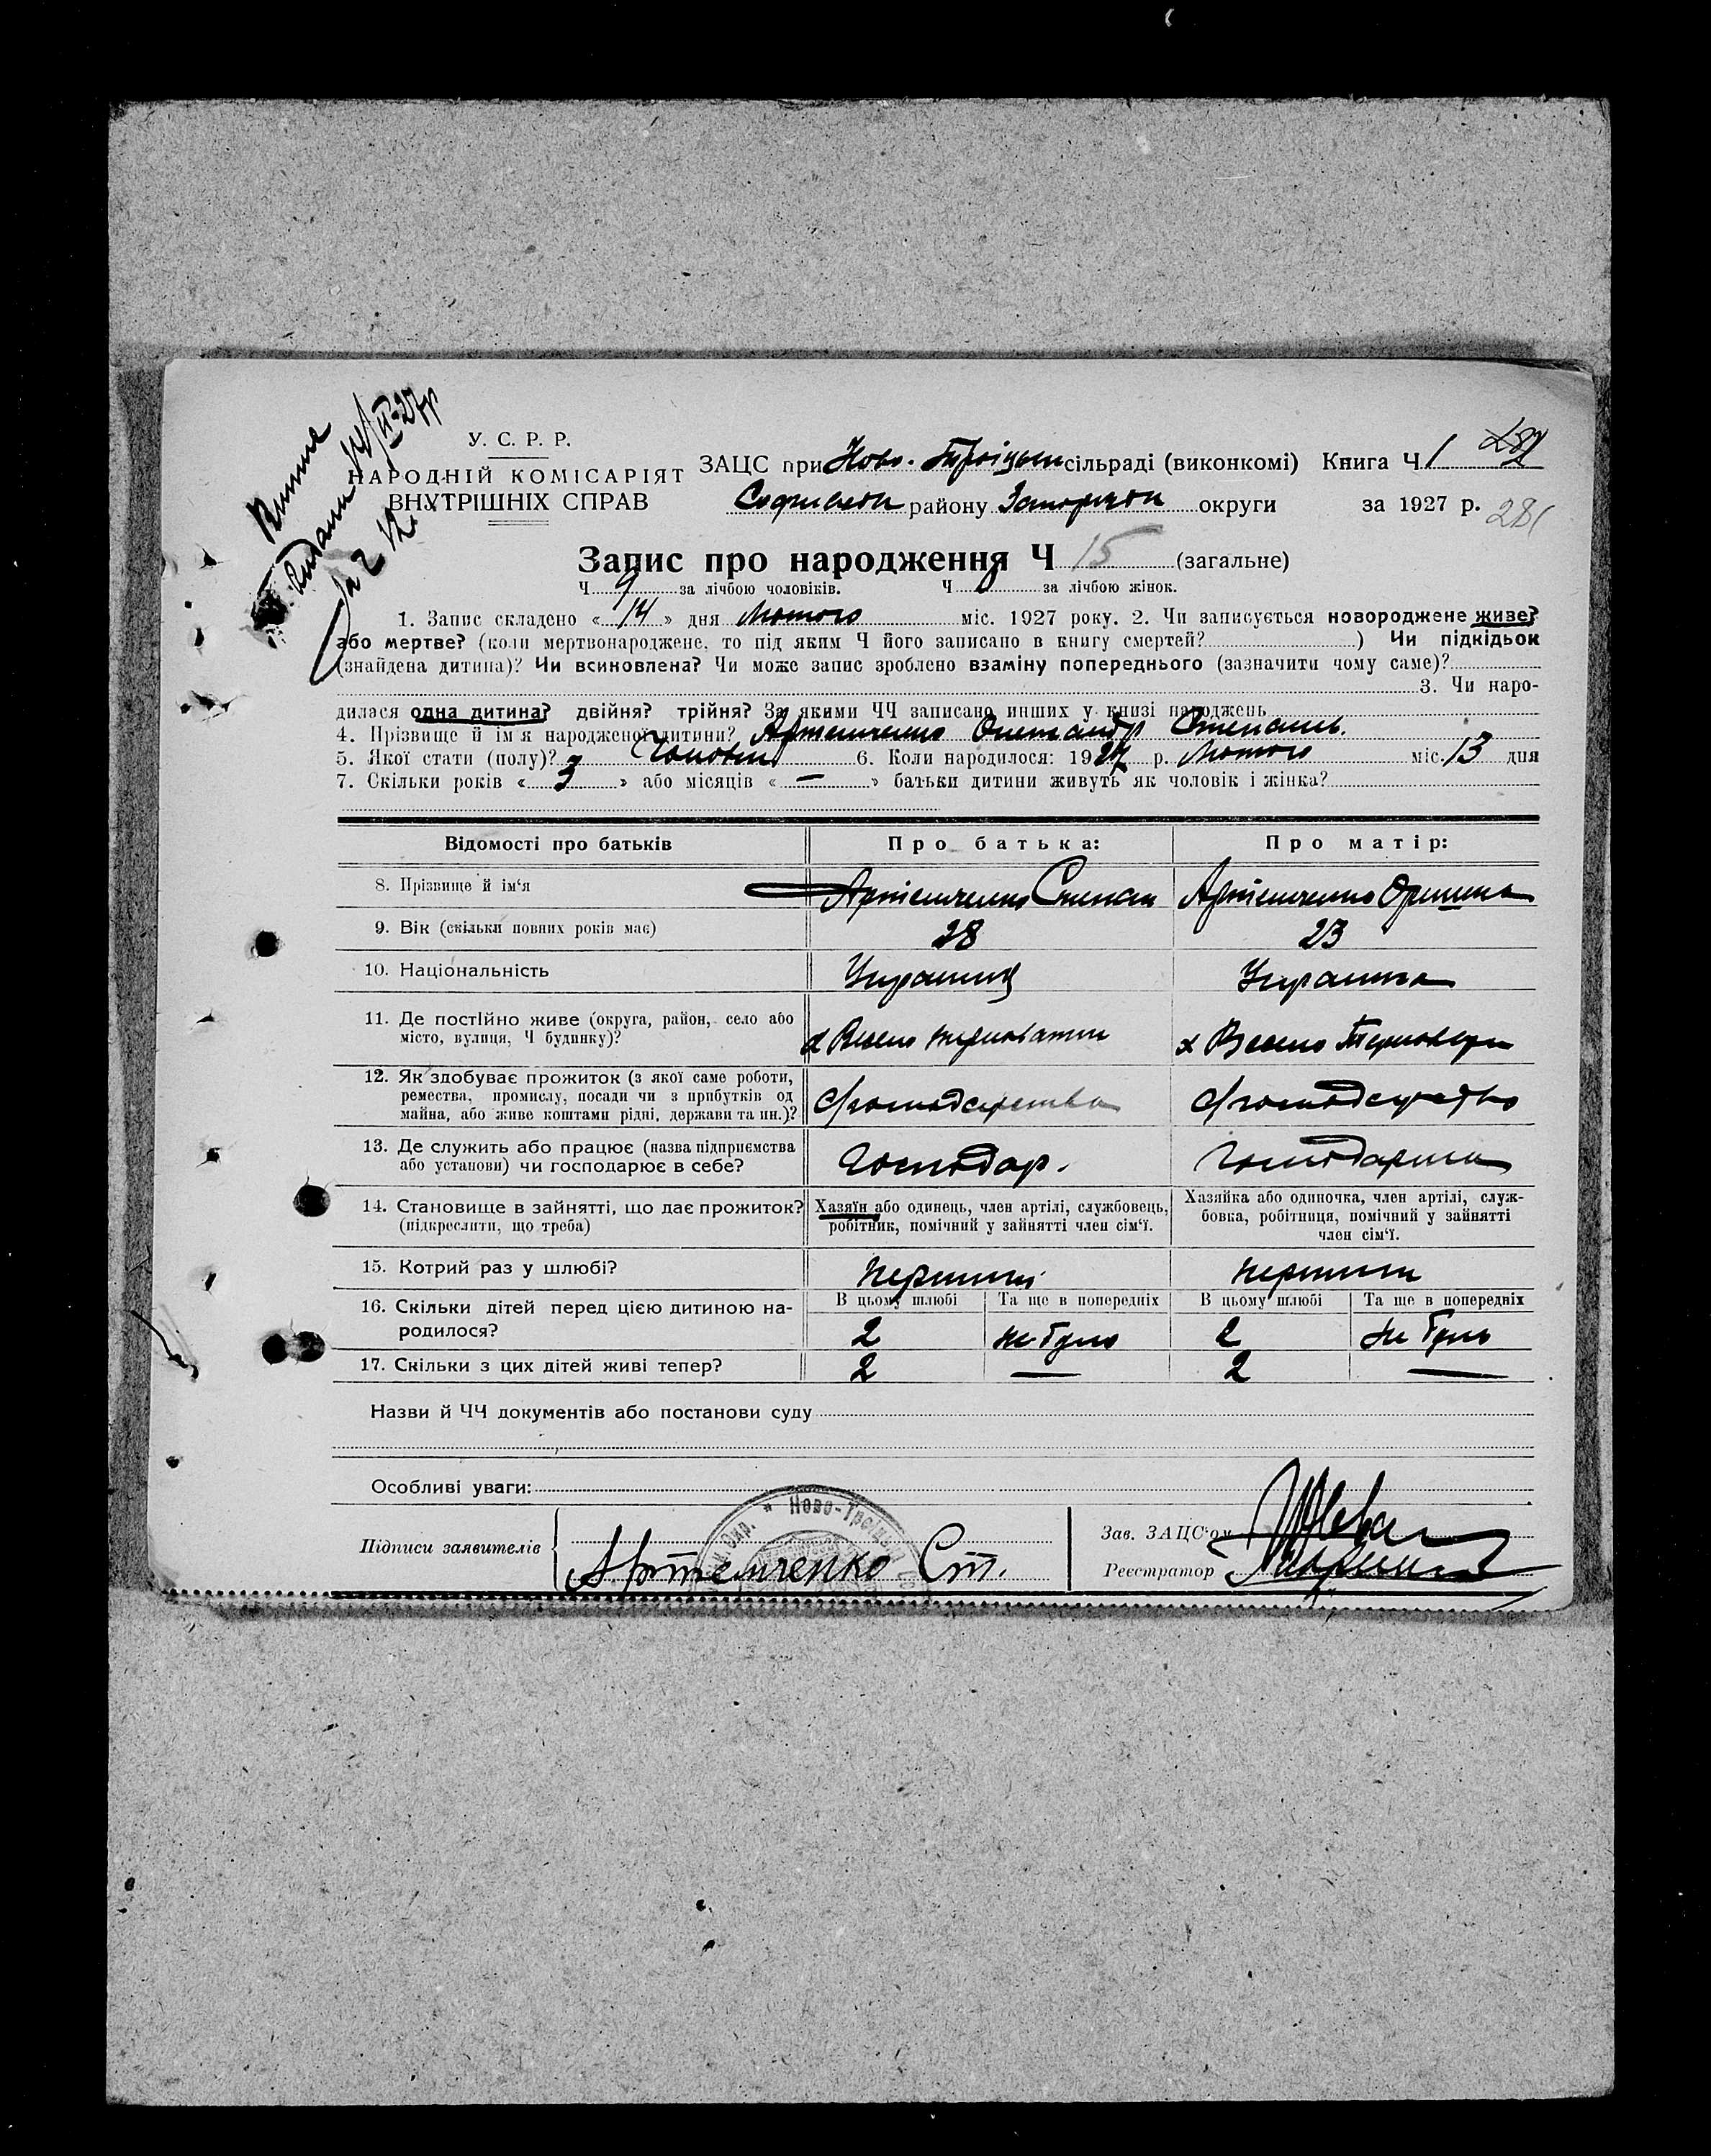 У. С. Р. Р.
НАРОДНІЙ КОМІСАРІЯТ
ВНУТРІШНІХ СПРАВ
ЗАЦС при Ново-Троіцьки сільраді (виконкомі) Книга Ч 1
району округи за 1927 р. 281
Запис про народження Ч 15 (загальне)
Ч 9 за лічбою чоловіків. Ч за лічбою жінок.
1. Запис складено « 14 » дня Лютого міс. 1927 року. 2. Чи записується новороджене живе?
або мертве? (коли мертвонароджене, то під яким Ч його записано в книгу смертей? ) Чи підкідьок
(знайдена дитина)? Чи всиновлена? Чи може запис зроблено взаміну попереднього (зазначити чому саме)?
3. Чи наро-
дилася одна дитина? двійня? трійня? За якими ЧЧ записано инших у книзі народжень
4. Прізвище й ім'я народженої дитини? Артемченко Олександр Степанів.
5. Якої стати (полу)? Чоловіч 6. Коли народилося: 1927 р. Лютого міс. 13 дня
7. Скільки років « 3 » або місяців « — » батьки дитини живуть як чоловік і жінка?
Відомості про батьків Про батька: Про матір:
8. Прізвище й ім'я Артемченко Степан Артемченко Оришка
9. Вік (скільки повних років має) 28 23
10. Національність Украинец Украинка
11. Де постійно живе (округа, район, село або
місто, вулиця, Ч будинку)? х Весело х Весело
12. Як здобуває прожиток (з якої саме роботи,
ремества, промислу, посади чи з прибутків од
майна, або живе коштами рідні, держави та ин.)? с/господарства с/господарство
13. Де служить або працює (назва підприємства
або установи) чи господарює в себе? Господар. Господарка
14. Становище в зайнятті, що дає прожиток?
(підкреслити, що треба)
Хазяїн або одинець, член артілі, службовець,
робітник, помічний у зайнятті член сім'ї.
Хазяйка або одиночка, член артілі, служ-
бовка, робітниця, помічний у зайнятті
член сім'ї.
15. Котрий раз у шлюбі? первший первший
В цьому шлюбі Та ще в попередніх В цьому шлюбі Та ще в попередніх
16. Скільки дітей перед цією дитиною на-
родилося? 2 не було 2 не було
17. Скільки з цих дітей живі тепер? 2 — 2 —
Назви й ЧЧ документів або постанови суду
Особливі уваги:
Ново-Троіцьк
Підписи заявителів Артемченко Ст.
Зав. ЗАЦС'ом
Реєстратор